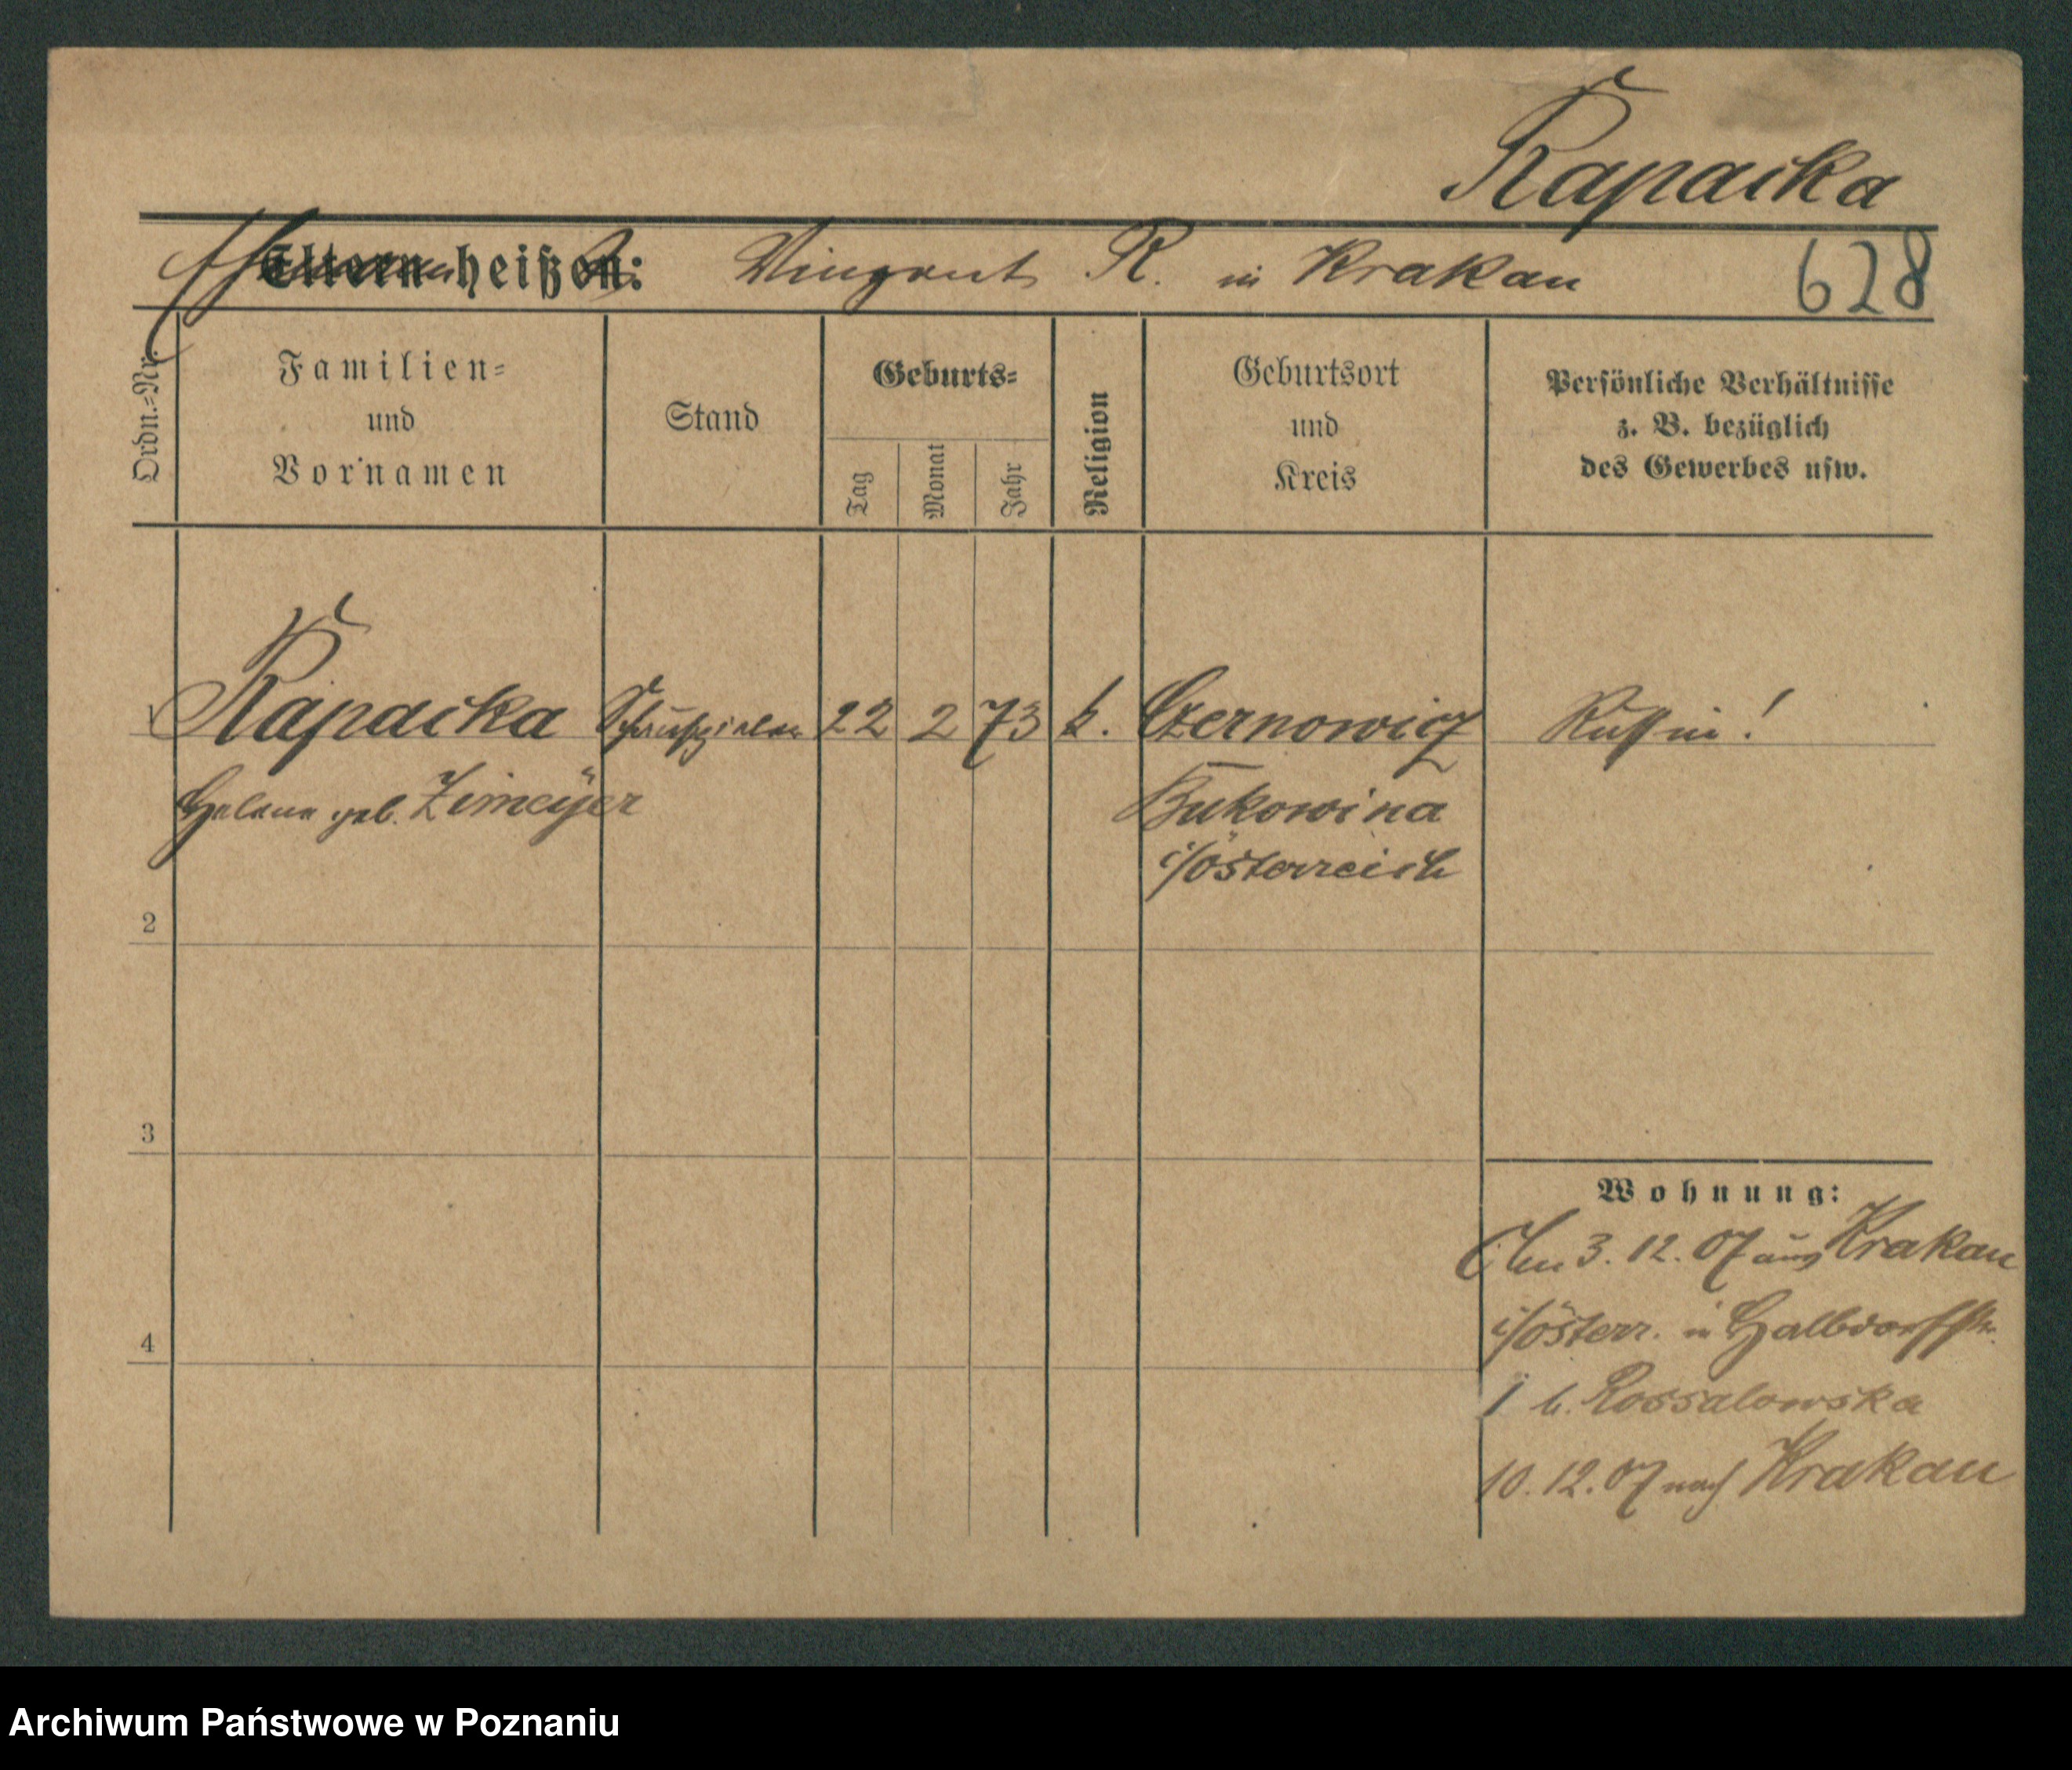 Rapacka
Eltern heißen: Vinzent R. in Krakau
628
Ordn.-Nr.
Familien-
und
Vornamen
Stand
Geburts-
Tag
Monat
Jahr
Religion
Geburtsort
und
Kreis
Persönliche Verhältnisse
z. B. bezüglich
des Gewerbes usw.
1 Rapacka Schauspielerin 22 2 73 k. Czernowicz Russin!
Helena geb. Zimeÿer Bukowina
i/österreich
2
3
4
Wohnung:
Am 3. 12. 07 aus Krakau
i/österr. in Halbdorfstr.
1 b. Rossalowska
10. 12. 07 nach Krakau
Archiwum Państwowe w Poznaniu